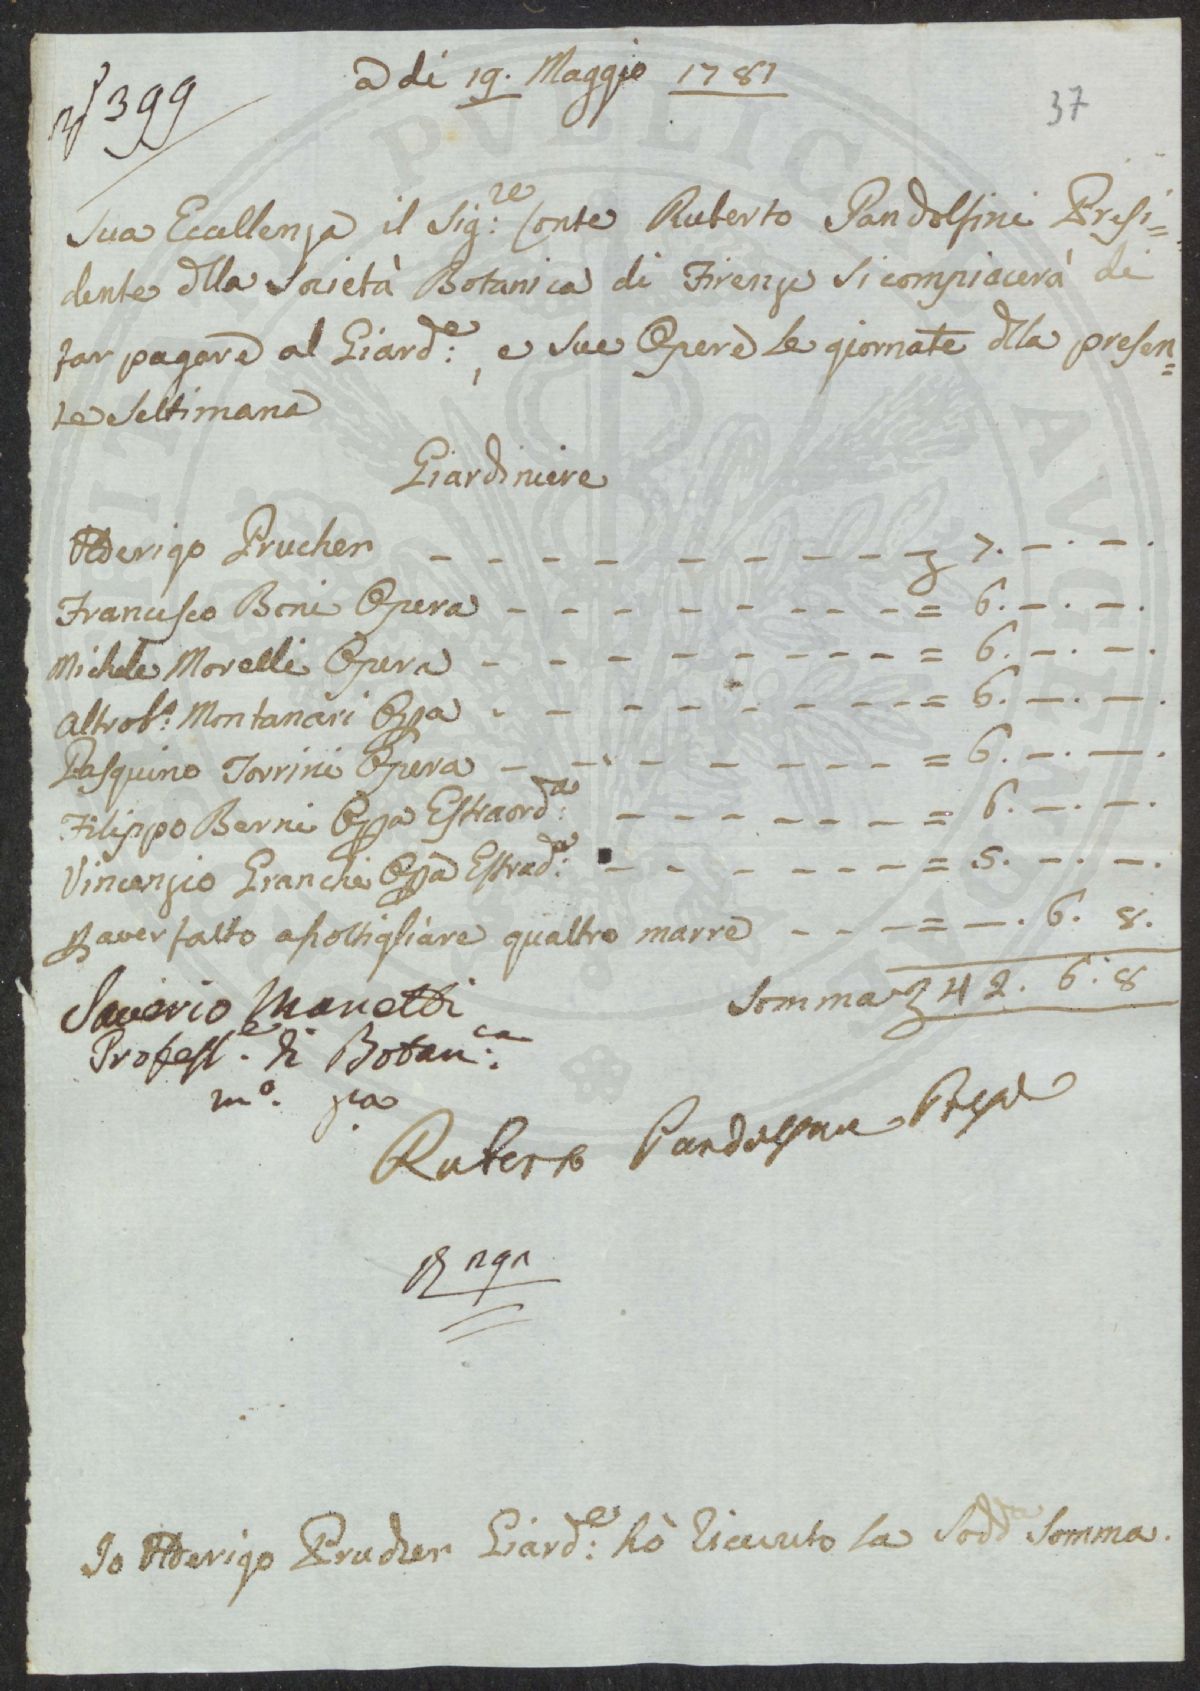 N.° 399
a dì 19. Maggio 1781
37
Sua Eccellenza il Sig:re Conte Ruberto Pandolfini Presi=
dente dlla Società Botanica di Firenze si compiacerà di
far pagare al Giard:e, e sue Opere le giornate dlla presen=
te Settimana
Giardiniere
Prucher - - - - - - - - - 7. -. -.
Francesco Boni Opera - - - - - - - - = 6. -. -.
Michele Morelli Opera - - - - - - - - - = 6. -. -.
Altrob:o Montanari Opa - - - - - - - - = 6. -. -.
Pasquino Torrini Opera - - - - - - - - = 6. -. -.
Filippo Berni Opa Estraord:a - - - - - - = 6. -. -.
Vincenzio Granchi Opa Estrad:a - - - - - - = 5. -. -.
p aver fatto apottigliare quattro marre - - - = -. 6. 8.
Somma 42. 6. 8
Saverio Manetti
Profess.e di Botan:ca
m.o pa
Ruberto Pandolfini Preside
Io Prucher Giard:e hò ricevuto la Sodda Somma.
PVBLICAE